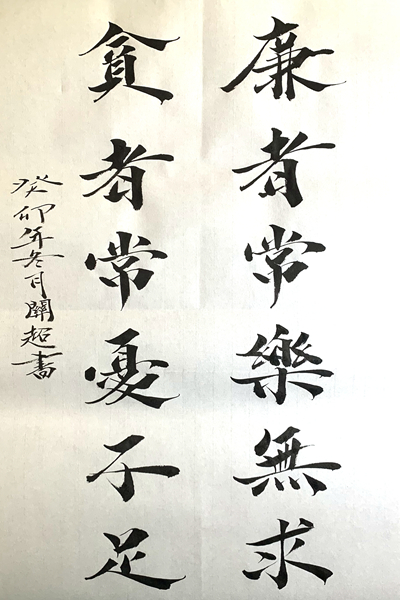 廉者常樂無求
貪者常憂不足
癸卯年冬月開超書